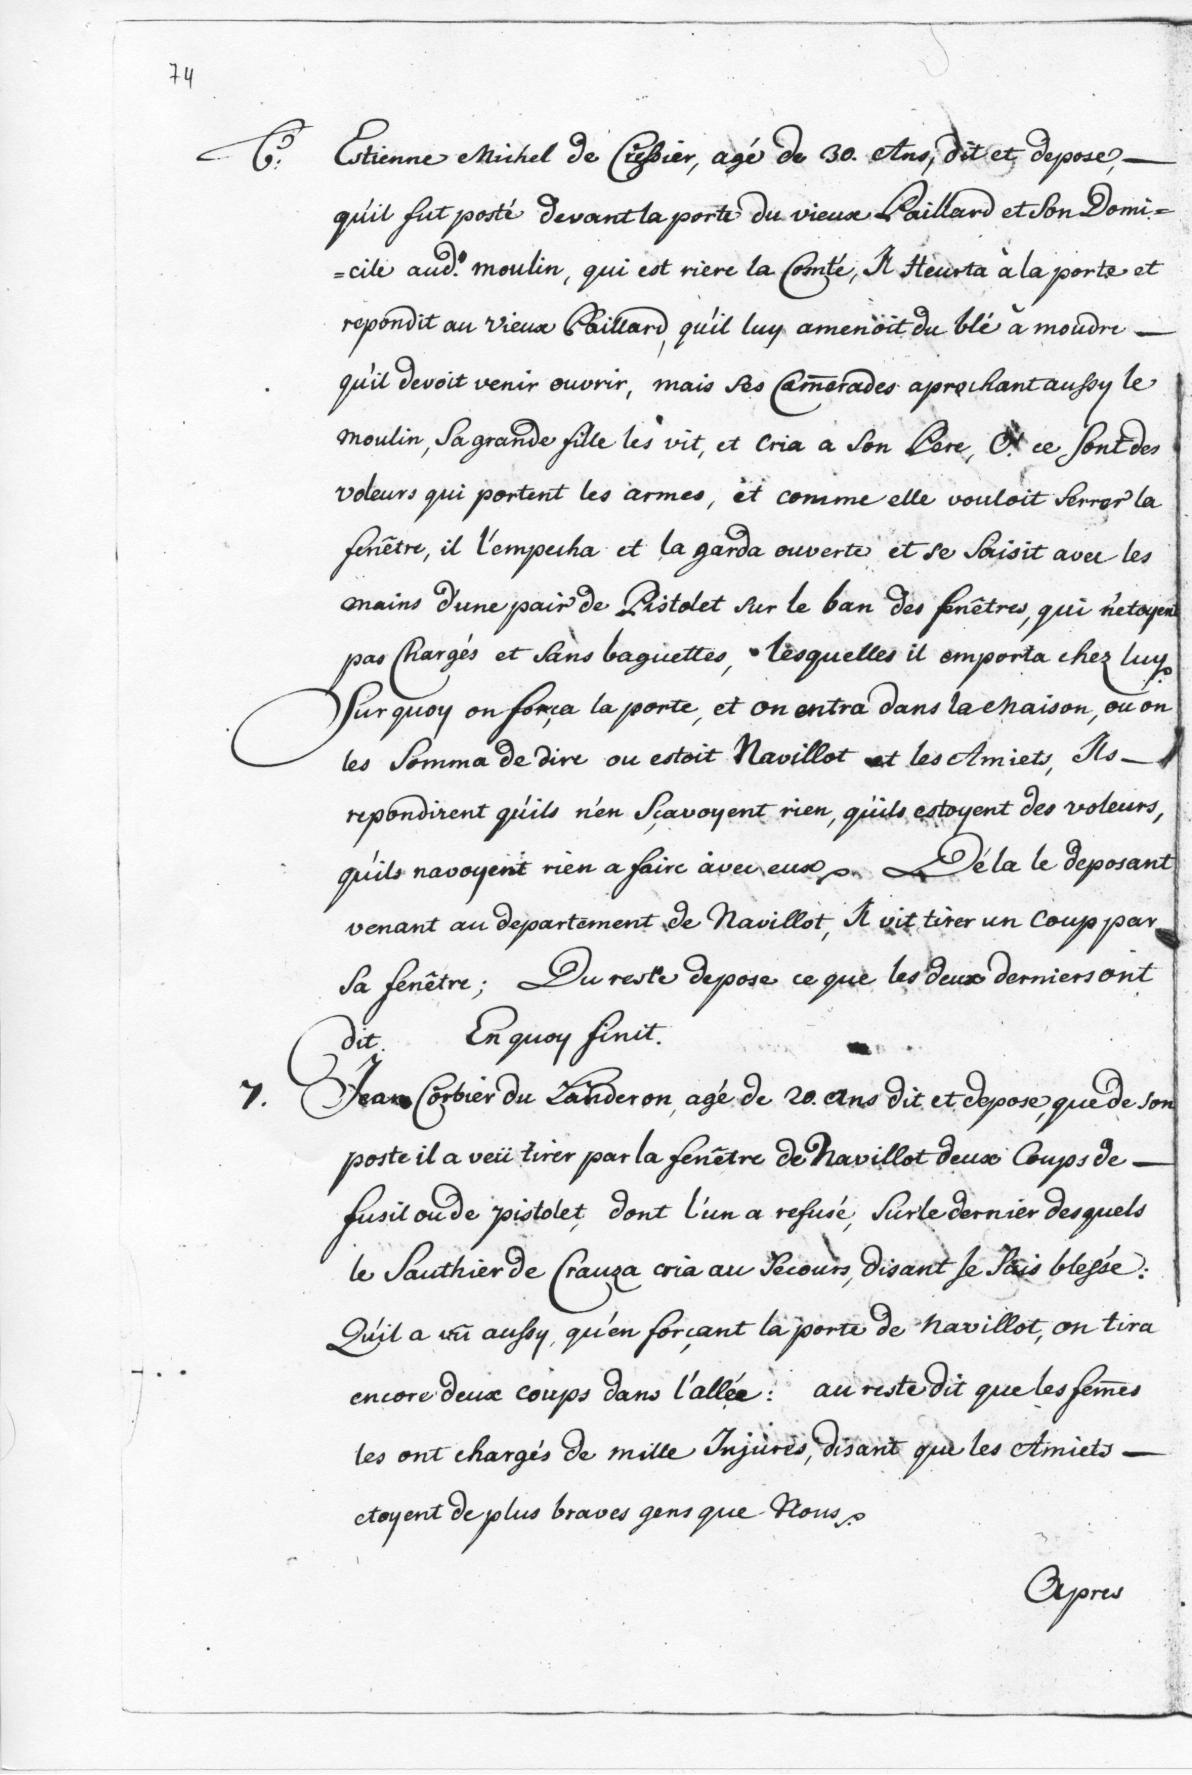 74
6. Estienne Michel de Cressier, agé de 30. Ans, dit et depose, —
qu'il fut posté devant la porte du vieux Paillard et Son Domi=
=cile aud.t moulin, qui est riere la Comté, Il Heurta à la porte et
repondit au vieux Paillard, qu'il luy amenoit du blé à moudre —
qu'il devoit venir ouvrir, mais ses Camerades aprochant aussy le
moulin, Sa grande fille les vit, et cria a Son Pere, O! ce sont des
voleurs qui portent les armes, et comme elle vouloit serrer la
fenêtre, il l'empecha et la garda ouverte et se saisit avec les
mains d'une pair de Pistolet sur le ban des fenêtres, qui n'etoyent
pas Chargés et sans baguettes, lesquelles il emporta chez luy.
Sur quoy on força la porte, et on entra dans la Maison, ou on
les Somma de dire ou estoit Navillot et les Amiets, Ils —
repondirent qu'ils n'en Sçavoyent rien, qu'ils estoyent des voleurs,
qu'ils navoyent rien a faire avec eux. Dé la le deposant
venant au departement de Navillot, Il vit tirer un coup par
sa fenêtre; Du reste depose ce que les deux derniers ont
dit. En quoy finit.
7. Jean Corbier du Landeron, agé de 20. ans dit et depose, que de son
poste il a veü tirer par la fenêtre de Navillot deux Coups de —
fusil ou de pistolet, dont l'un a refusé, sur le dernier desquels
le Sauthier de Crauza cria au secours, disant Je suis blessée:
Qu'il a vû aussy, qu'en forçant la porte de Navillot, on tira
encore deux coups dans l'allée: au reste dit que les femes
les ont chargés de mille Injures, disant que les Amiets —
etoyent de plus braves gens que Nous.
Apres